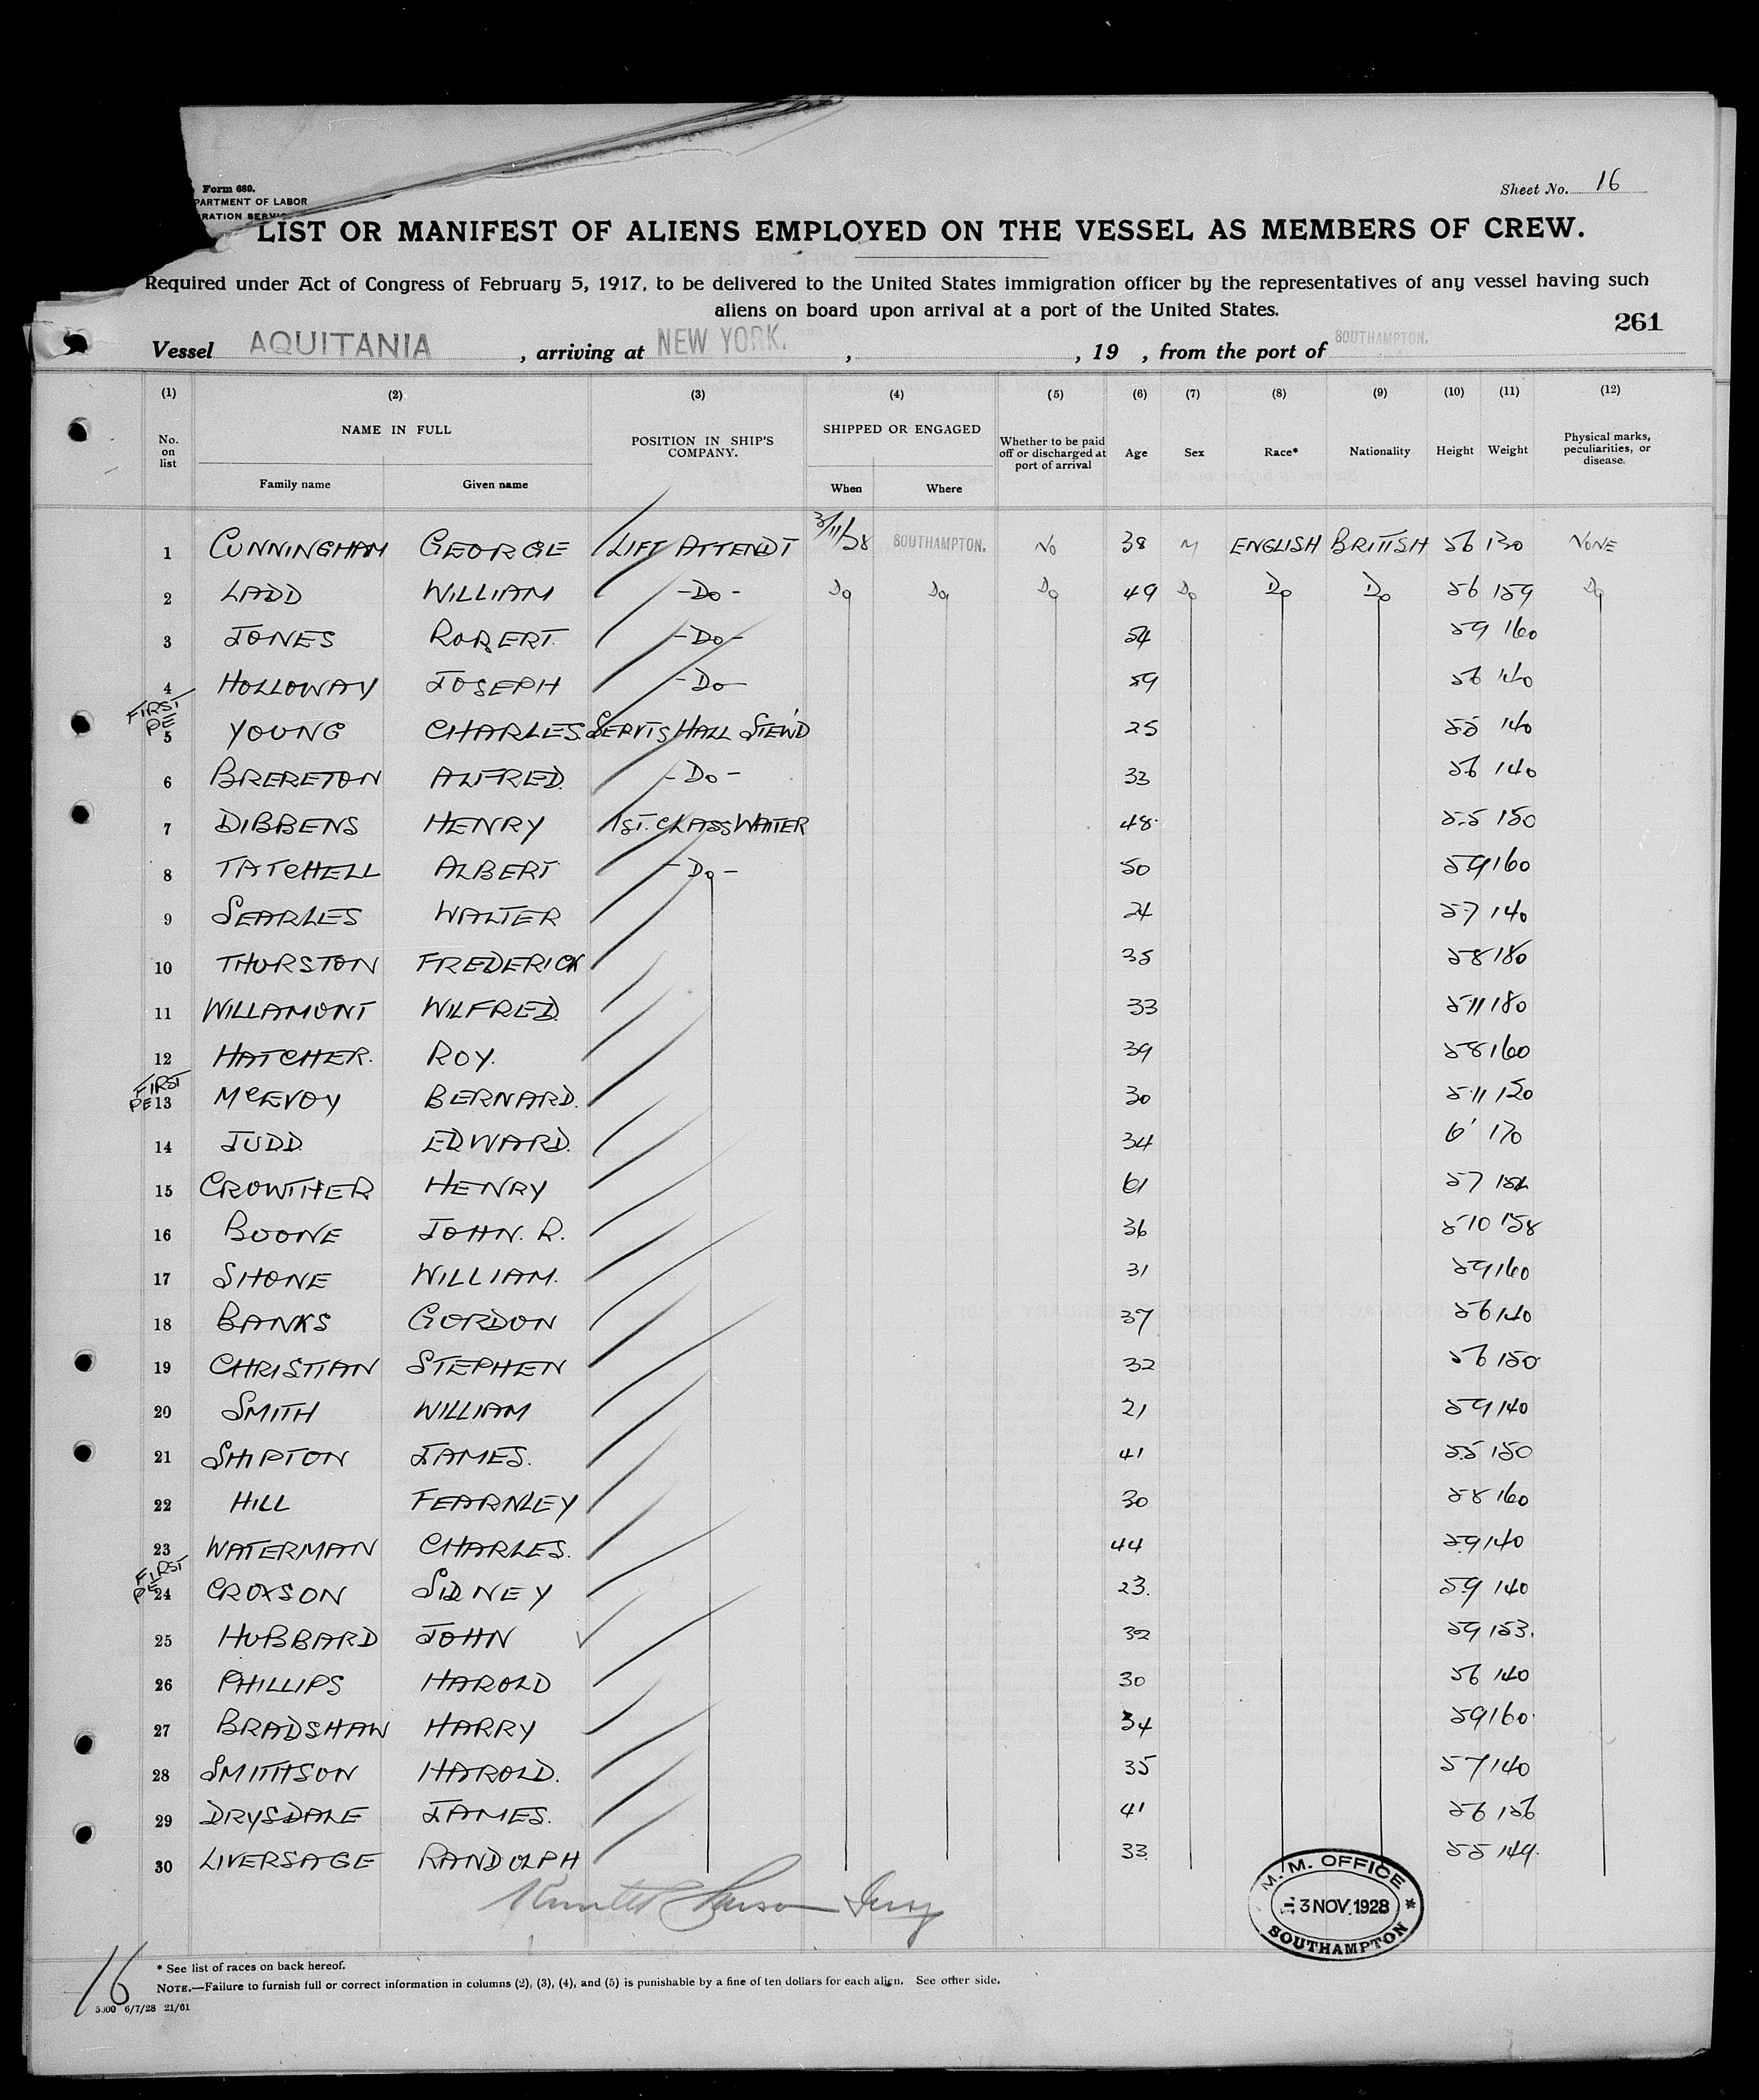 Form 680.
PARTMENT OF LABOR
RATION SERVI
Sheet No. 16
LIST OR MANIFEST OF ALIENS EMPLOYED ON THE VESSEL AS MEMBERS OF CREW.
Required under Act of Congress of February 5, 1917, to be delivered to the United States immigration officer by the representatives of any vessel having such
aliens on board upon arrival at a port of the United States.
261
Vessel AQUITANIA , arriving at NEW YORK. , , 19 , from the port of SOUTHAMPTON.
(1) (2) (3) (4) (5) (6) (7) (8) (9) (10) (11) (12)
No. on list NAME IN FULL Family name Given name POSITION IN SHIP'S COMPANY. SHIPPED OR ENGAGED When Where Whether to be paid off or discharged at port of arrival Age Sex Race* Nationality Height Weight Physical marks, peculiarities, or disease.
1 CUNNINGHAM GEORGE LIFT ATTENDT 3/11/28 SOUTHAMPTON. NO 38 M ENGLISH BRITISH 56 130 NONE
2 LADD WILLIAM -Do- Do Do Do 49 Do Do Do 56 159 Do
3 JONES ROBERT. -Do- 54 59 160
4 HOLLOWAY JOSEPH -Do- 59 56 140
FIRST
PE
5 YOUNG CHARLES SERVTS HALL STEW'D 25 55 140
6 BRERETON ALFRED. -Do- 33 56 140
7 DIBBENS HENRY 1ST. CLASS WAITER 48. 5.5 150
8 TATCHELL ALBERT -Do- 50 59 160
9 SEARLES WALTER 24 57 140
10 THURSTON FREDERICK 35 58 180
11 WILLAMONT WILFRED. 33 511 180
12 HATCHER. ROY. 39 58 160
FIRST
PE 13 McEVOY BERNARD. 30 511 150
14 JUDD EDWARD. 34 6' 170
15 CROWTHER HENRY 61 57
16 BOONE JOHN. R. 36 510 158
17 SHONE WILLIAM. 31 59 160
18 BANKS GORDON 37 56 140
19 CHRISTIAN STEPHEN 32 56 150
20 SMITH WILLIAM 21 59 140
21 SHIPTON JAMES. 41 5.5 150
22 HILL FEARNLEY 30 58 160
23 WATERMAN CHARLES. 44 59 140
FIRST
PE 24 CROXSON SIDNEY 23. 59 140
25 HUBBARD JOHN 32 59 153.
26 PHILLIPS HAROLD 30 56 140
27 BRADSHAW HARRY 34 59 160.
28 SMITHSON HAROLD. 35 57 140
29 DRYSDALE JAMES. 41 56 156
30 LIVERSAGE RANDOLPH 33. 55 149.
M.M. OFFICE
3 NOV. 1928
SOUTHAMPTON
16
* See list of races on back hereof.
NOTE.—Failure to furnish full or correct information in columns (2), (3), (4), and (5) is punishable by a fine of ten dollars for each alien. See other side.
5000 6/7/28 21/61